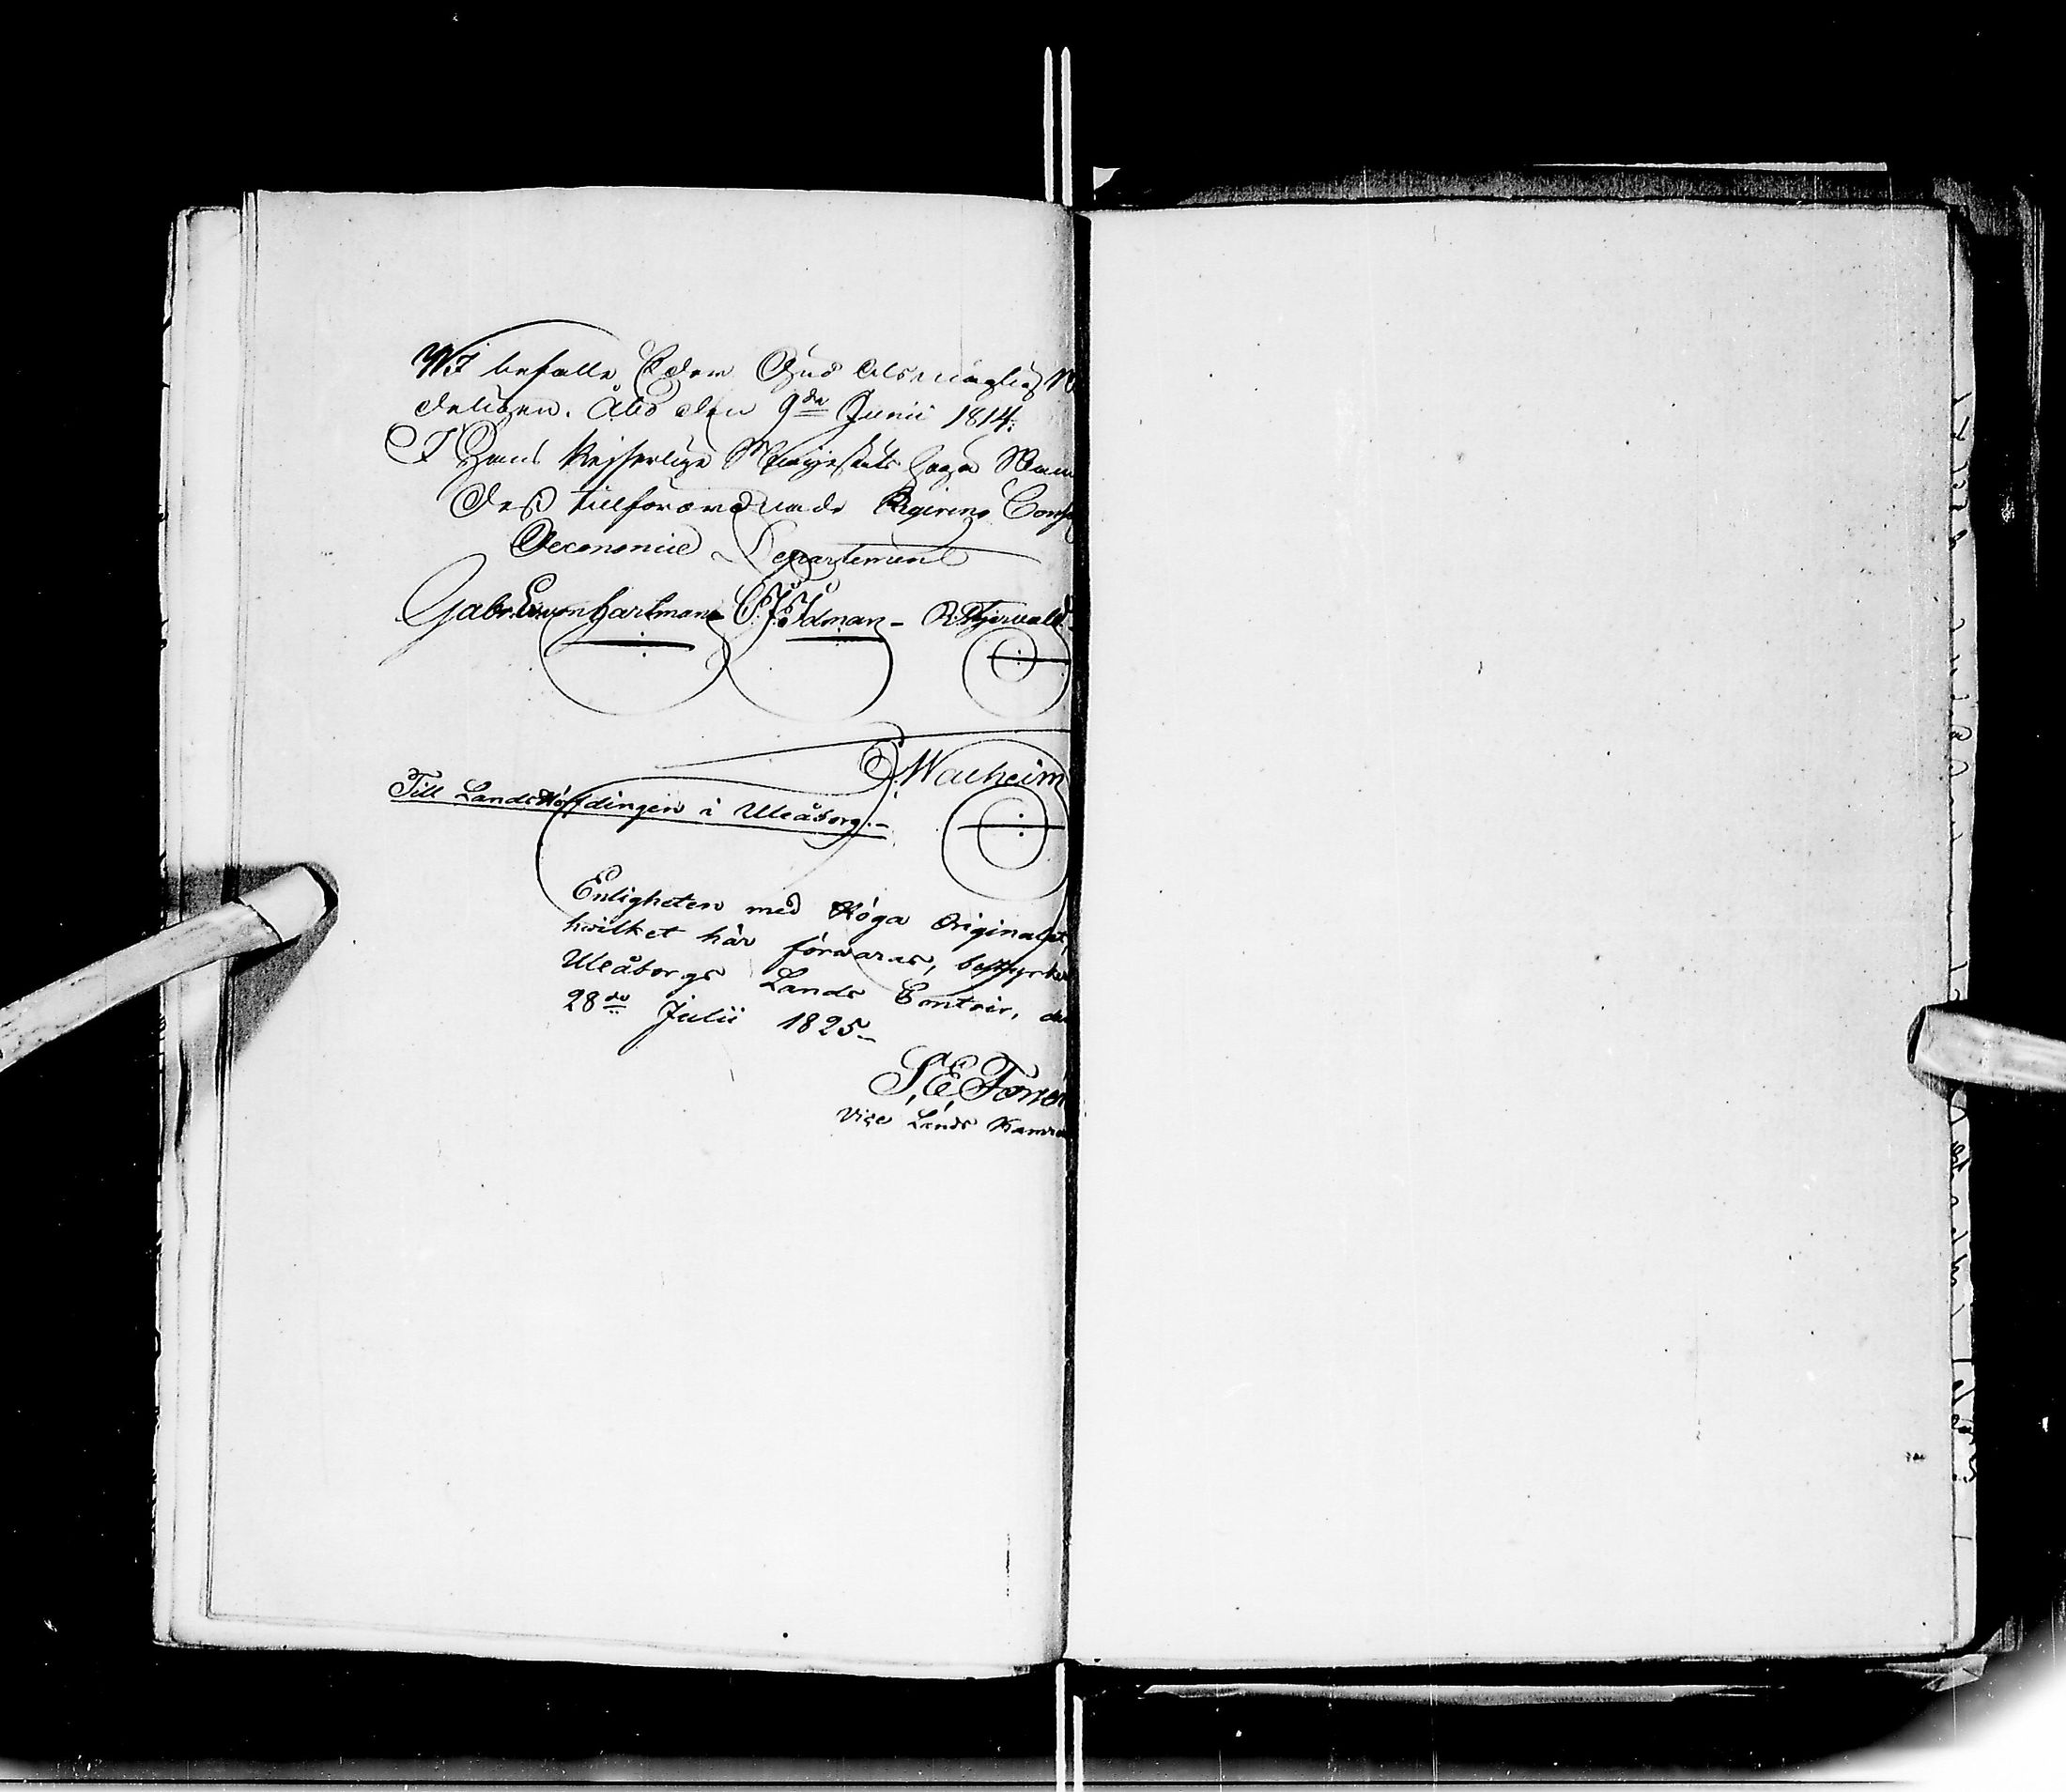 Wi befalle Eder Gud Alsmägtig N
deligen. Åbo den 9de Junii 1814.
I Hans Kejserliga Majestäts höga Namn
Dess tillförordnade Regerings Conse
Oeconomie Departement
Gabr. E. von Hartman C. F. Edman R. Stjervald
S. Walheim
Till Landshöfdingen i Uleåborg.-
Enligheten med Höga Originalet,
hvilket här förvaras, bestyrker
Uleåborgs Lands Contoir, den
28de Julii 1825-
S, E,
Vice Lands Kamre